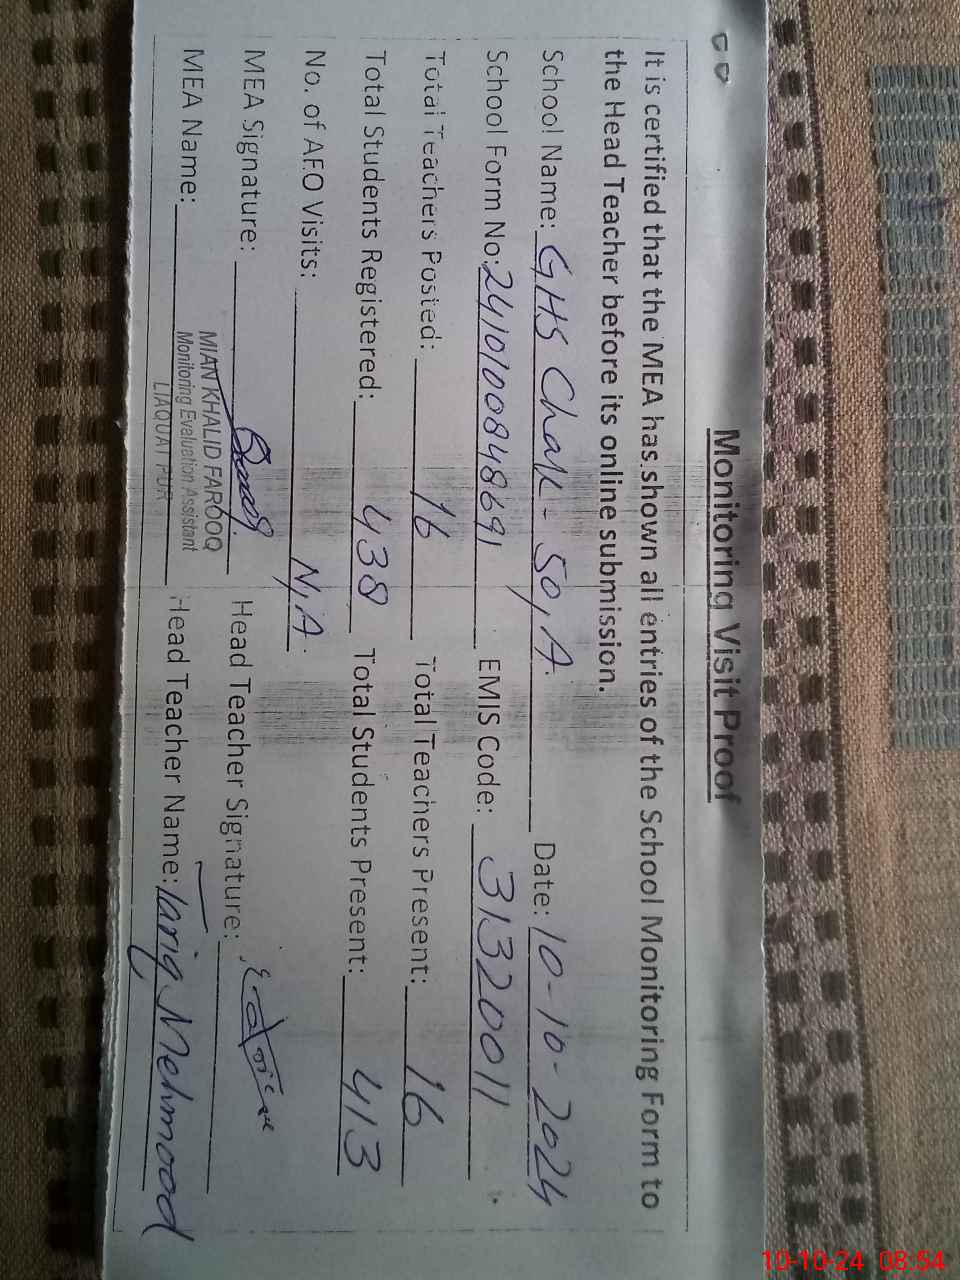 Monitoring Visit Proof
It is certified that the MEA has shown all entries of the School Monitoring Form to
the Head Teacher before its online submission.
School Name: GHS Chak-50/A Date: 10-10-2024
School Form No: 2410100848691 EMIS Code: 31320011
Total Teachers Posted: 16 Total Teachers Present: 16
Total Students Registered: 438 Total Students Present: 413
No. of AEO Visits: N/A
MEA Signature: Head Teacher Signature:
MIAN KHALID FAROOQ
Monitoring Evaluation Assistant
LIAQUAT PUR
MEA Name: Head Teacher Name: Tariq Mehmood
10-10-24 08:54